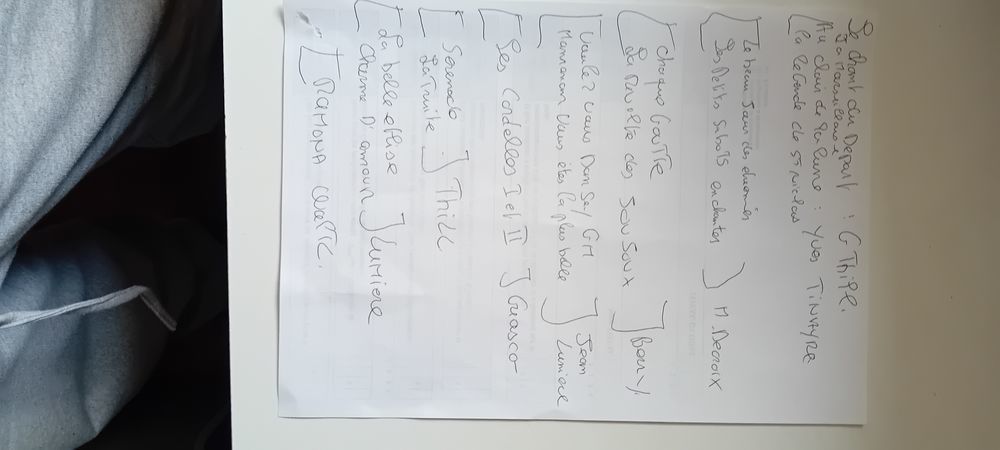 Le chant du Depart : G Thill.
La Marseillaise
Au clair de la lune : Yves TINAYRE
la légende de St Nicolas
Le beau jour des
Des Petits Sabots enchantés ] M. Decroix
Chaque
La Révolte des Jou Joux ] Berry
Voulez vous Danser / GM
Maman vous êtes la plus belle ] Jean Lumiere
Les Cordelles I et II ] Guasco
Serenade
La Truite ] Thill
La belle eglise
Charme D'amour ] LUMIERE
RAMONA